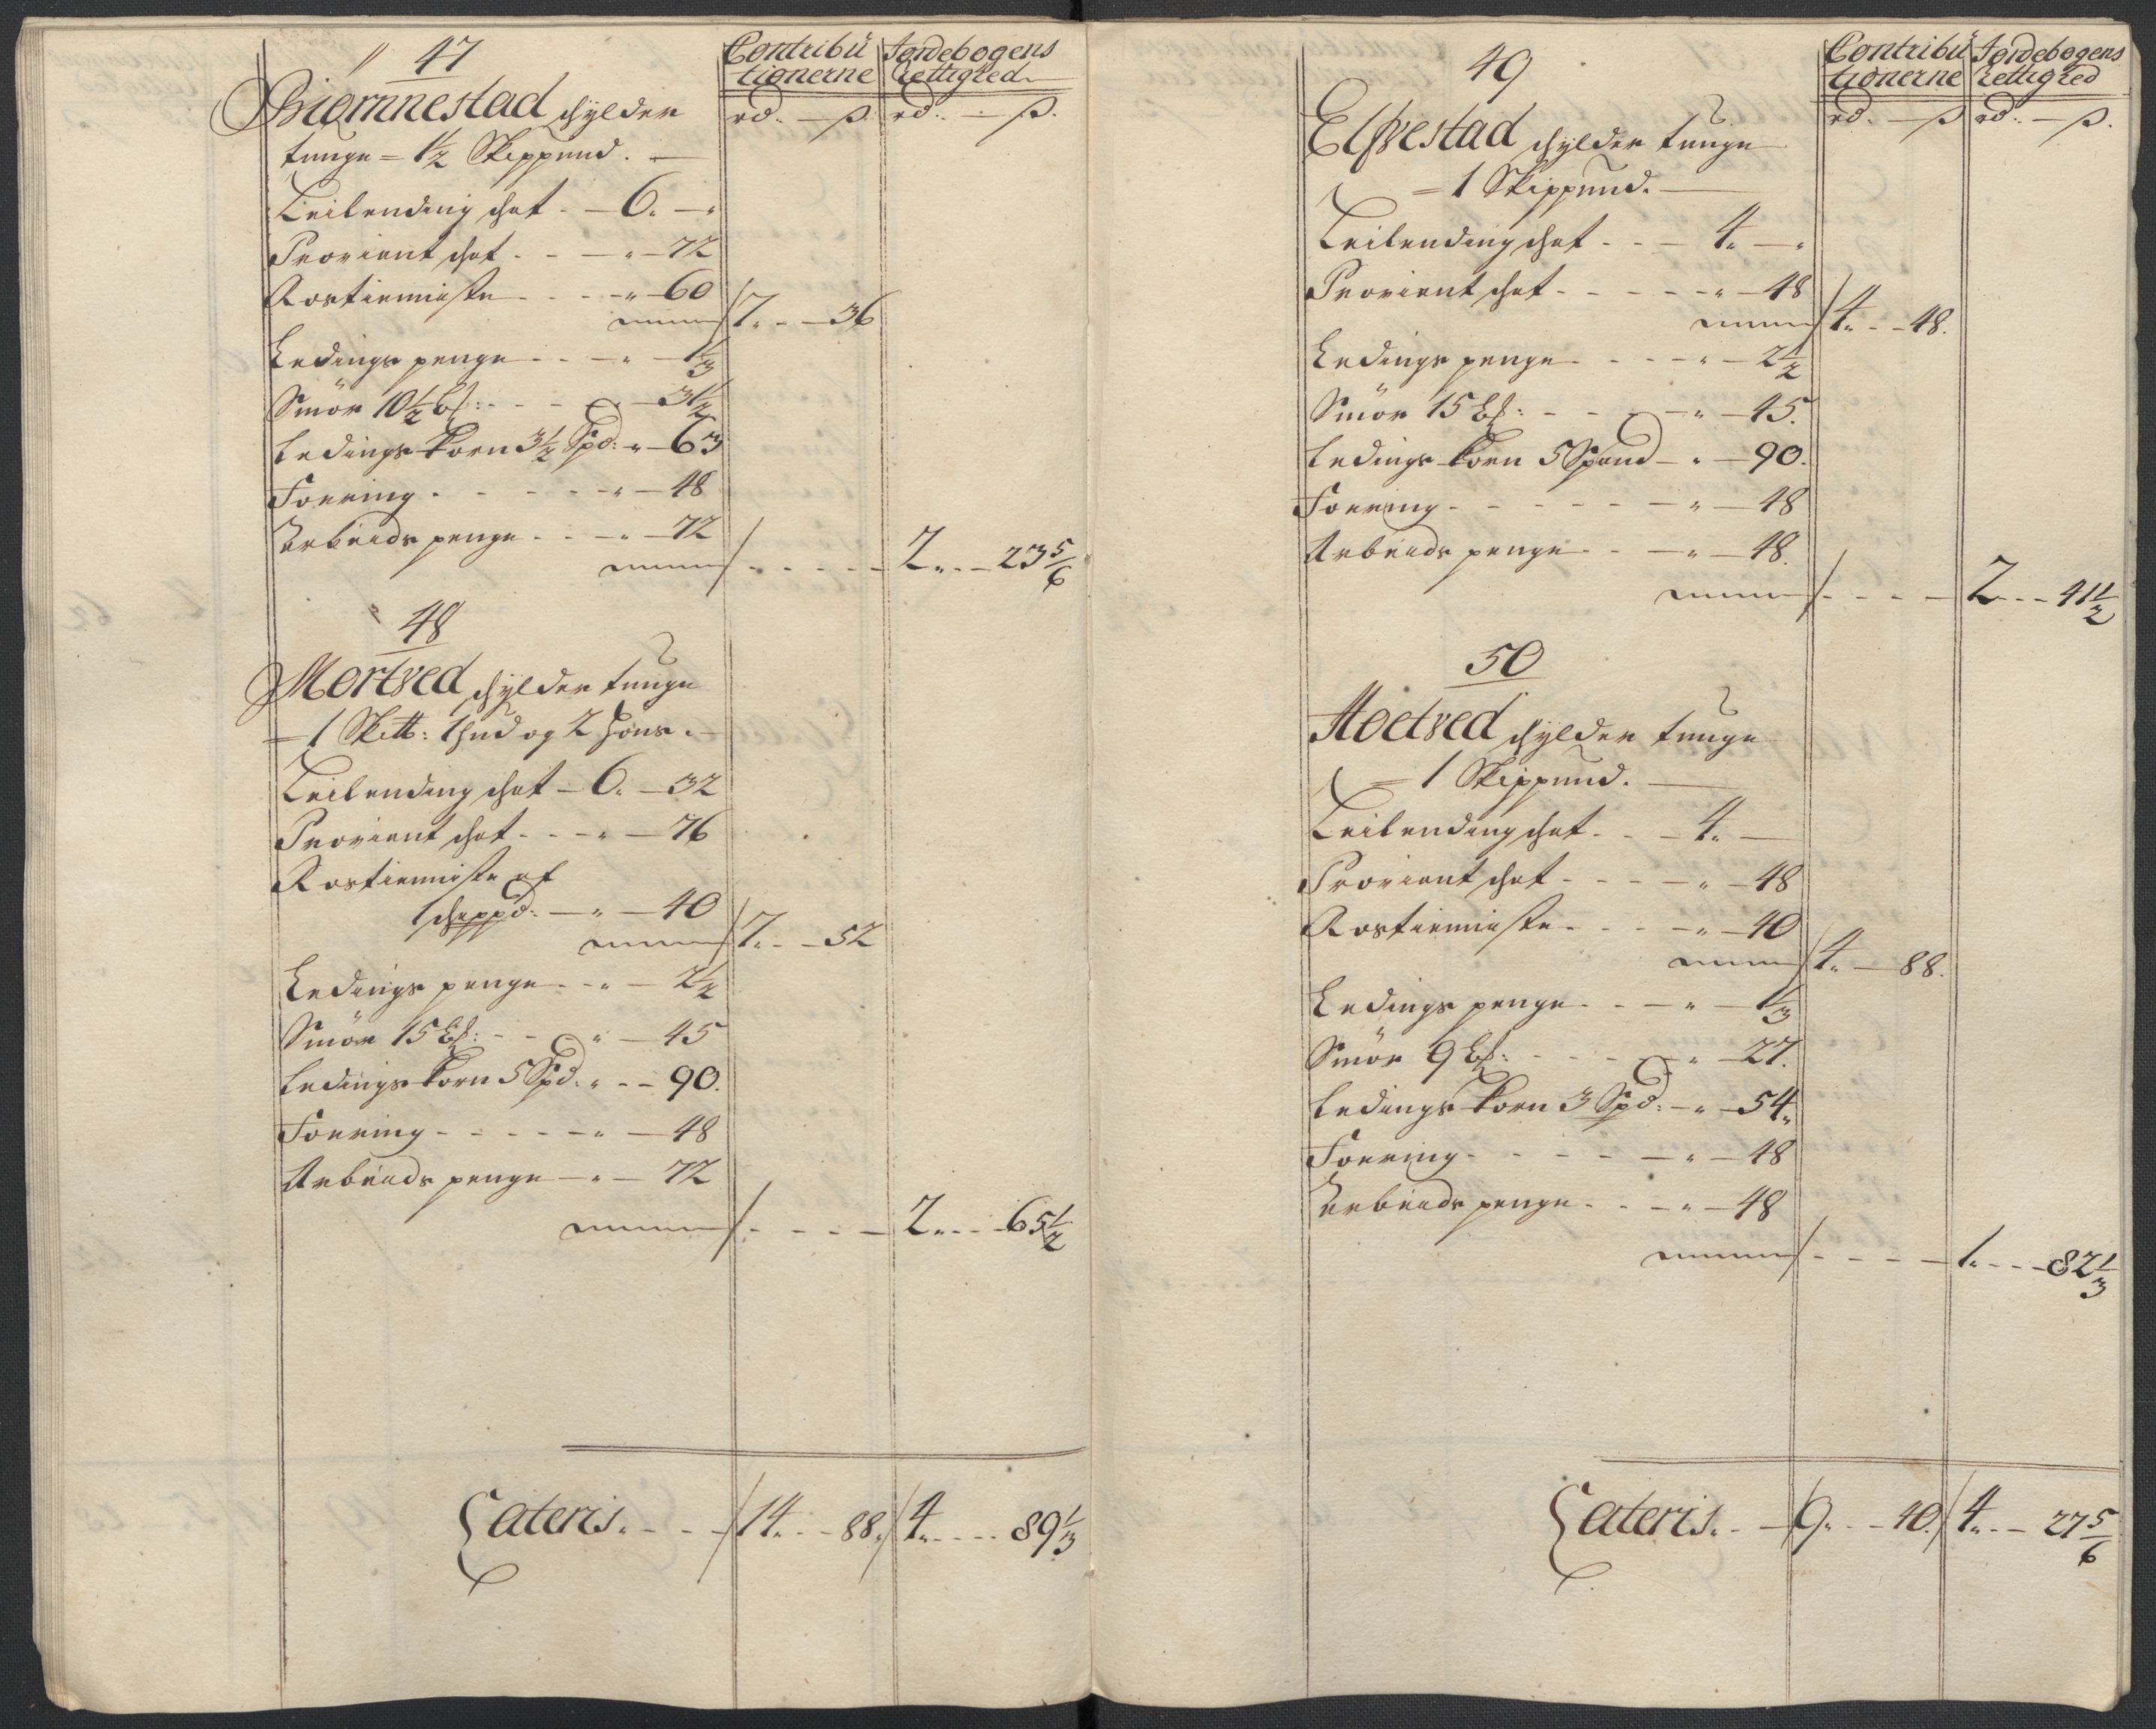 47
Contribu
tionerne
Jordebogens
Rettighed
rd. — ß. rd. — ß.
Biørnnestad schylder
tunge = 1½ Skippund.
Leilending schat — 6. — "
Proviant schat - - — " — 72
Rostieniste - - - — " — 60
7. - — 36
Ledings penge - - — " — ⅓
Smör 10½ bß: - - — 31½
Ledings Korn 3½ Spd: " — 63
Foering - - - - — " — 48
Arbeids penge - - — " — 72
2. - — 23 5/6
48
Mortved schylder tunge
= 1 Sk℔: 1 hud og 2 Höns.
Leilending schat — 6. — 32
Proviant schat - - - " — 76
Rostieniste af
1 scheppd: — " — 40
7. - — 52
Ledings penge - - " — 2½
Smör 15 bß: - - " — 45
Ledings Korn 5 Spd: " - — 90.
Foering - - - - — " — 48
Arbeids penge — " — 72
2. - - 65½
Lateris. - - — 14. - - 88. 4. - - - 89⅓
49
Contribu
tionerne
Jordebogens
Rettighed
rd. — ß rd. — ß.
Elfvestad schylder tunge
= 1 Skippund.
Leilending schat - - — 4. — "
Proviant schat - - - - — " — 48
4. - - 48.
Ledings penge - - - — " — 2½
Smör 15 bß: - - - — " — 45.
Ledings Korn 5 Spand — " — 90.
Foering - - - - - — " — 48
Arbeids penge - - — " — 48.
2 - - - 41½
50
Hoetved schylder tunge
= 1 Skippund.
Leilending schat - - — 4. —
Proviant schat - - - — " — 48
Rostieniste - - - — " — 40
4. — 88.
Ledings penge - - — " — ⅓
Smör 9 bß: - - - — " — 27.
Ledings Korn 3 Spd: — " — 54.
Foering - - - - — " — 48
Arbeids penge - - — " — 48
1. - - - 82⅓
Lateris. - — 9. - - 40. 4. - — 27 5/6